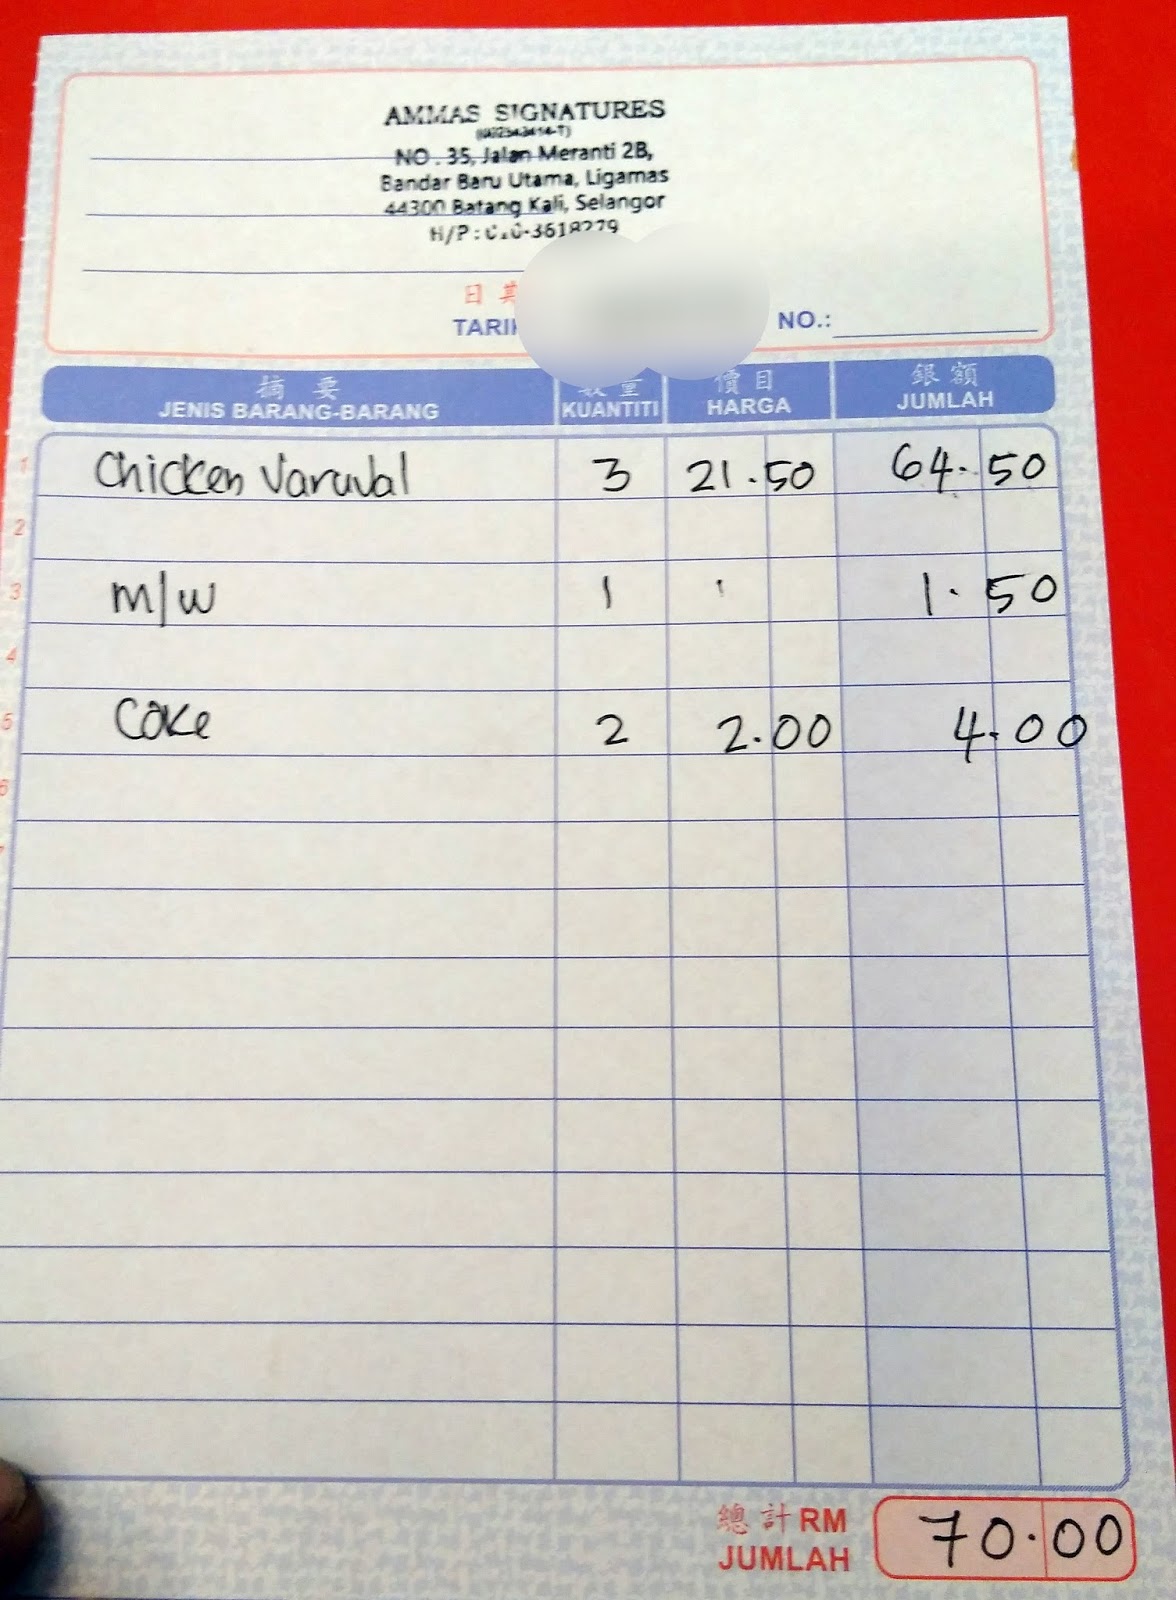 AMMAS SIGNATURES
NO. 35, Jalan Meranti 2B,
Bandar Baru Utama, Ligamas
44300 Batang Kali, Selangor
H/P :
日
NO.:
摘要 數量 價目 銀額
JENIS BARANG-BARANG KUANTITI HARGA JUMLAH
1 Chicken Varuval 3 21.50 64.50
2
3 m/w 1 1.50
4
5 Coke 2 2.00 4.00
6
總計 RM
JUMLAH 70.00